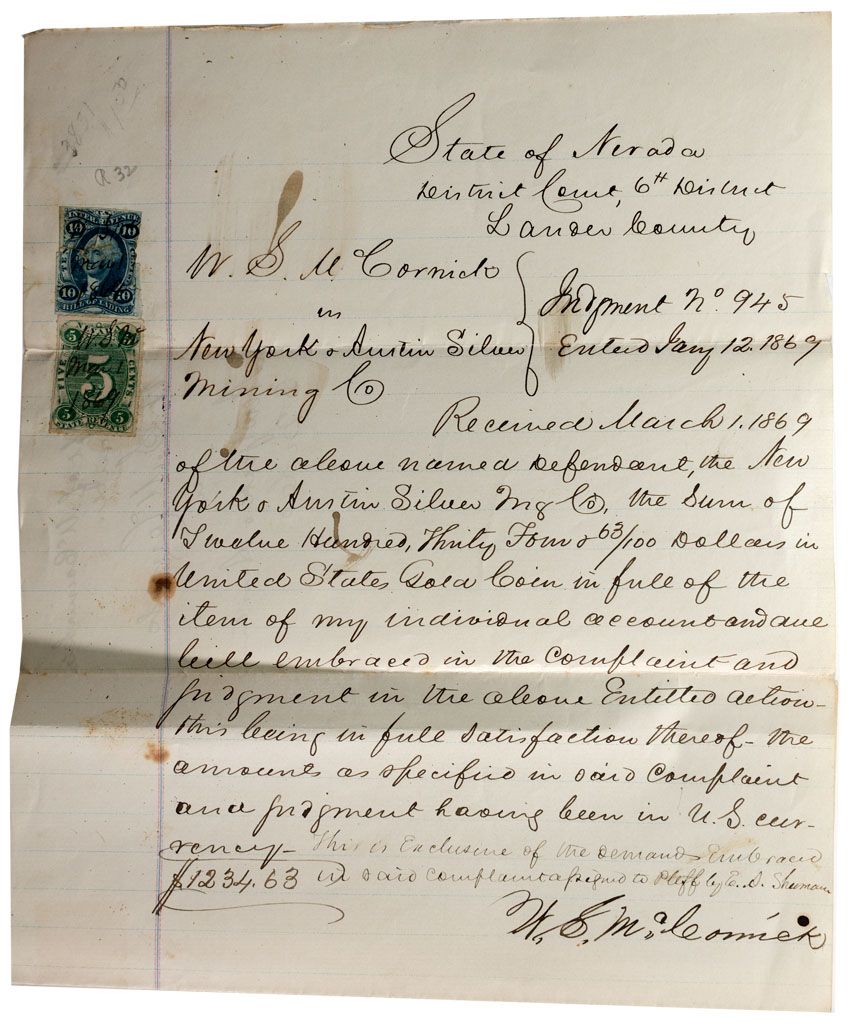 3851
R 32
State of Nevada
District Court, 6th District
Lander County
W. S. McCornick
vs
New York & Austin Silver
Mining Co
Judgment No. 945
Entered Jany 12. 1869
Received March 1. 1869
of the above named Defendant, the New
York & Austin Silver Mg Co, the sum of
Twelve Hundred, Thirty Four & 63/100 Dollars in
United States Gold Coin in full of the
item of my individual account and due
bill embraced in the complaint and
judgment in the above Entitled action-
this being in full satisfaction thereof- the
amounts as specified in said Complaint
and judgment having been in U.S. cur-
rency- This is Exclusive of the demands Embraced
$1234.63 in said complaint assigned to Plff by E. S. Sherman
W. S. McCornick
INTER. REVENUE
10 10
TEN CENTS
10 10
BILL OF LADING
W.S.M
Mar. 1
1869
5
FIVE CENTS
5 5
STATE REVENUE